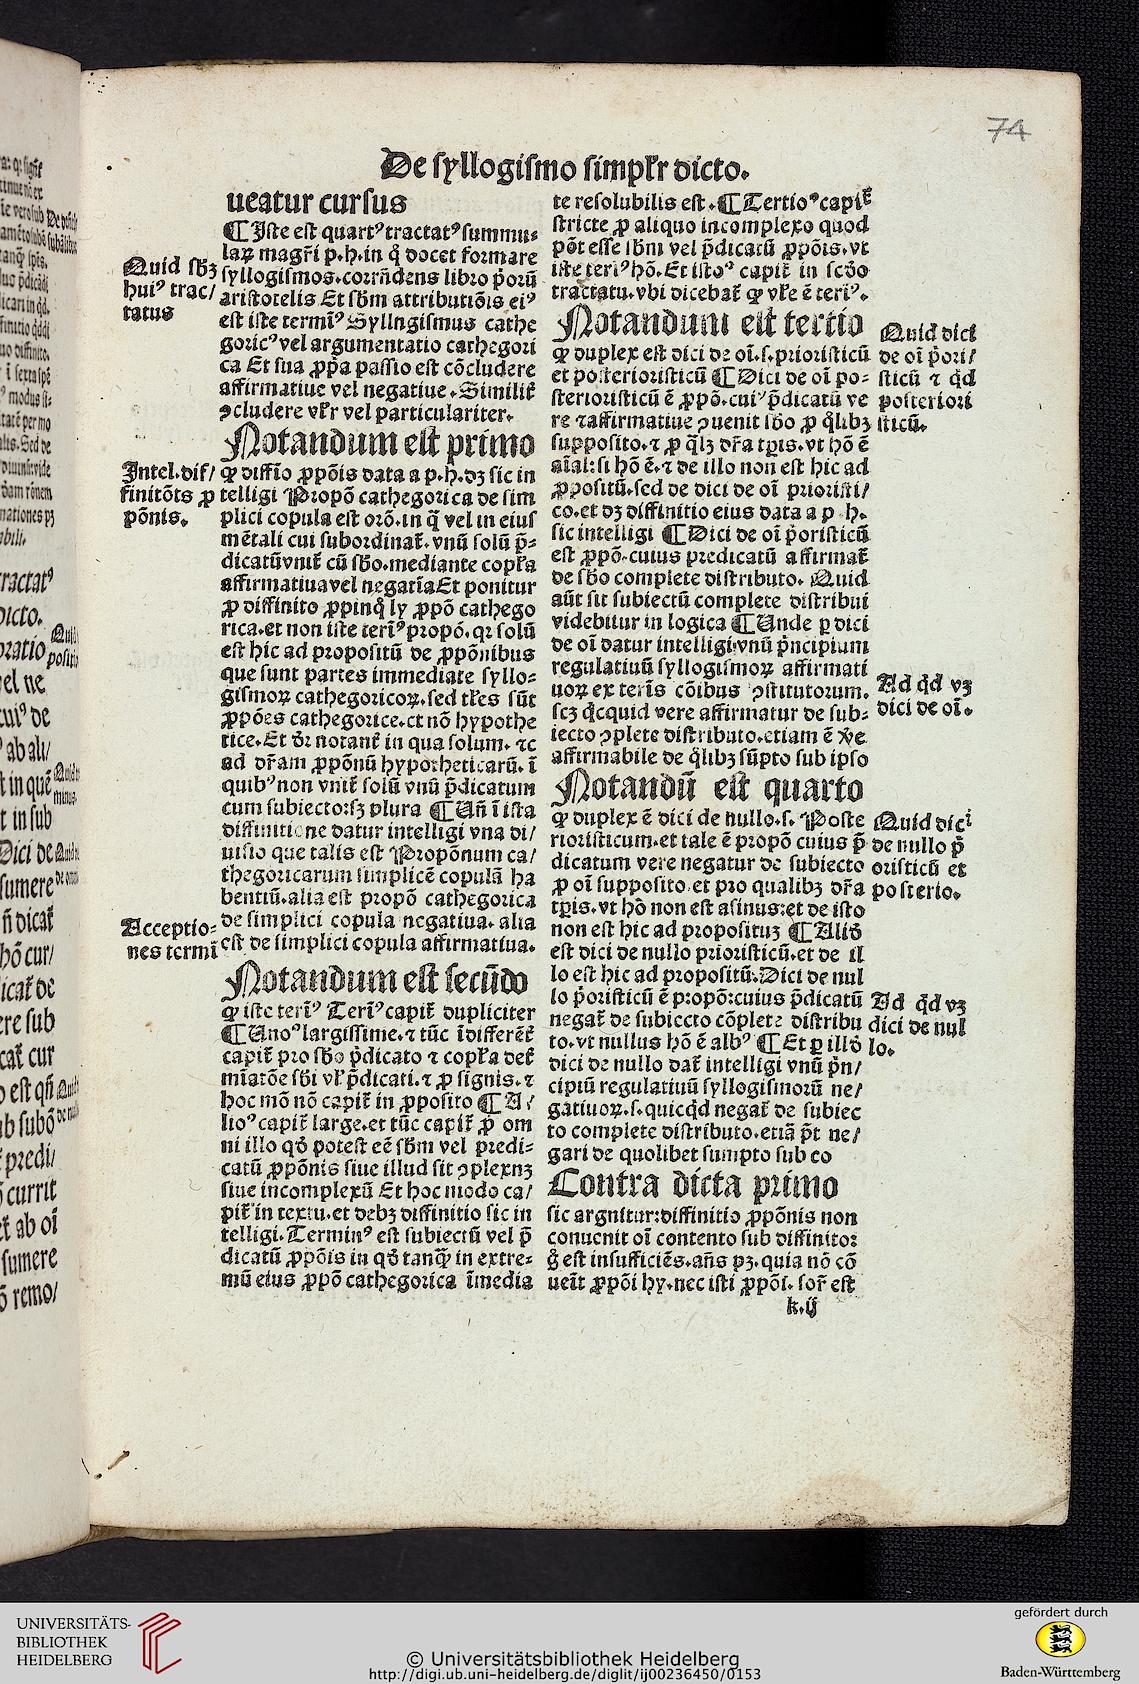 74
De syllogismo simplr̄ dicto.
ueatur cursus
¶ Iste est quartꝰ tractatꝰ summu⸗
laꝝ magr̄i p.h.in q̊ docet formare
syllogismos.corrn̄dens libro p̓orū
aristotelis Et sb̄m attributiōis eiꝰ
est iste termīꝰ Syllngismus cathe
goricꝰ vel argumentatio cathegori
ca Et sua ꝓp̄a passio est cōcludere
affirmatiue vel negatiue. Similit̄
ꝯcludere vl̄r vel particulariter.
Notandum est primo
ꝙ diffīo ꝓpōis data a p.h.dꝫ sic in
telligi Propō cathegorica de sim
plici copula est orō.in q̄ vel in eius
mētali cui subordinat̄.vnū solū p̄⸗
dicatū vnit̄ cū sb̄o.mediante copl̄a
affirmatiua vel negatīa Et ponitur
ꝓ diffinito ꝓpinq̊ ly ꝓpō cathego
rica.et non iste terīꝰ propō.qꝛ solū
est hic ad propositū de ꝓpōnibus
que sunt partes immediate syllo⸗
gismoꝝ cathegoricoꝝ.sed tl̄es sūt
ꝓpōes cathegorice.et nō hypothe
tice.Et dr̄ notant̄ in qua solum. ⁊c
ad dr̄am ꝓpōnū hypotheticarū.ī
quibꝰ non vnit̄ solū vnū p̄dicatum
cum subiecto:sꝫ plura ¶ Un̄ ī ista
diffinitione datur intelligi vna di/
uisio que talis est Propōnum ca/
thegoricarum simplicē copulā ha
bentiū.alia est propō cathegorica
de simplici copula negatiua. alia
est de simplici copula affirmatiua.
Notandum est secūdo
ꝙ iste terīꝰ Terīꝰ capit̄ dupliciter
¶ Unoꝰ largissime.⁊ tūc īdifferēt̄
capit̄ pro sb̄o p̄dicato ⁊ copl̄a det̄
mīatōe sb̄i vl̄ p̄dicati.⁊ ꝓ signis.⁊
hoc mō nō capit̄ in ꝓposito ¶ A/
lioꝰ capit̄ large.et tūc capit̄ ꝓ om
ni illo qd̄ potest eē sb̄m vel predi⸗
catū ꝓpōnis siue illud sit ꝯplexuꝫ
siue incomplexū Et hoc modo ca/
pit̄ in textu.et debꝫ diffinitio sic in
telligi.Terminꝰ est subiectū vel p̄
dicatū ꝓpōis in qd̄ tanqꝫ in extre⸗
mū eius ꝓpō cathegorica īmedia
te resolubilis est. ¶ Tertioꝰ capit̄
stricte ꝓ aliquo incomplexo quod
pōt esse sb̄m vel p̄dicatū ꝓpōis.vt
iste terīꝰ hō. Et istoꝰ capit̄ in scd̄o
tractatu.vbi dicebat̄ ꝙ vl̄e ē terīꝰ.
Notandum est tertio
ꝙ duplex est dici de oī.s.prioristicū
et posterioristicū ¶ Dici de oī po⸗
sterioristicū ē ꝓpō.cuiꝰ p̄dicatū ve
re ⁊ affirmatiue ꝯuenit sb̄o ꝓ q̊libꝫ
supposito.⁊ ꝓ q̄lꝫ dr̄a tp̄is.vt hō ē
aīal:si hō ē.⁊ de illo non est hic ad
ꝓpositū.sed de dici de oī prioristi/
co.et dꝫ diffinitio eius data a p.h.
sic intelligi ¶ Dici de oī p̓oristicū
est ꝓpō.cuius predicatū affirmat̄
de sb̄o complete distributo. Quid
aūt sit subiectū complete distribui
videbitur in logica ¶ Unde ꝑ dici
de oī datur intelligi vnū p̓ncipium
regulatiuū syllogismoꝝ affirmati
uoꝝ ex terīs cōibus ꝯstitutorum.
scꝫ q̊cquid vere affirmatur de sub⸗
iecto ꝯplete distributo.etiam ē v̓e
affirmabile de q̊libꝫ sūpto sub ipso
Notandū est quarto
ꝙ duplex ē dici de nullo.s. Poste
rioristicum.et tale ē propō cuius p̄
dicatum vere negatur de subiecto
ꝓ oī supposito et pro qualibꝫ dr̄a
tp̄is.vt hō non est asinus:et de isto
non est hic ad proposituꝫ ¶ Aliud̄
est dici de nullo prioristicū.et de il
lo est hic ad propositū.Dici de nul
lo p̓oristicū ē propō:cuius p̄dicatū
negat̄ de subiecto cōplete distribu
to.vt nullus hō ē albꝰ ¶ Et ꝑ illd̄
dici de nullo dat̄ intelligi vnū p̓n/
cipiū regulatiuū syllogismorū ne/
gatiuoꝝ.s.quicq̊d negat̄ de subiec
to complete distributo.etiā p̄t ne/
gari de quolibet sumpto sub eo
Contra dicta primo
sic arguitur:diffinitio ꝓpōnis non
conuenit oī contento sub diffinito:
g̊ est insufficiēs.an̄s pꝫ.quia nō cō
ueīt ꝓpōi hy.nec isti ꝓpōi. sor̄ est
k.ij
Quid sb̄ꝫ
huiꝰ trac/
tatus
Intel.dif/
finitōīs ꝓ
pōnis.
Acceptio⸗
nes termī
Quid dici
de oī p̓ori/
sticū ⁊ q̊d
posteriori
sticū.
Ad q̊d vꝫ
dici de oī.
Quid dici
de nullo p̄
oristicū et
posterio.
Ad q̊d vꝫ
dici de nul
lo.
UNIVERSITÄTS-
BIBLIOTHEK
HEIDELBERG
© Universitätsbibliothek Heidelberg
http://digi.ub.uni-heidelberg.de/diglit/ij00236450/0153
gefördert durch
Baden-Württemberg